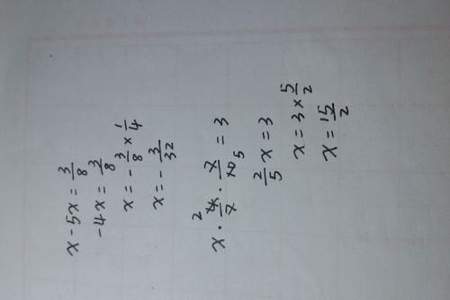 x - 5x = 3/8
-4x = 3/8
x = -3/8 × 1/4
x = -3/32
x · 4/7 · 7/10 = 3
2/5 x = 3
x = 3 × 5/2
x = 15/2